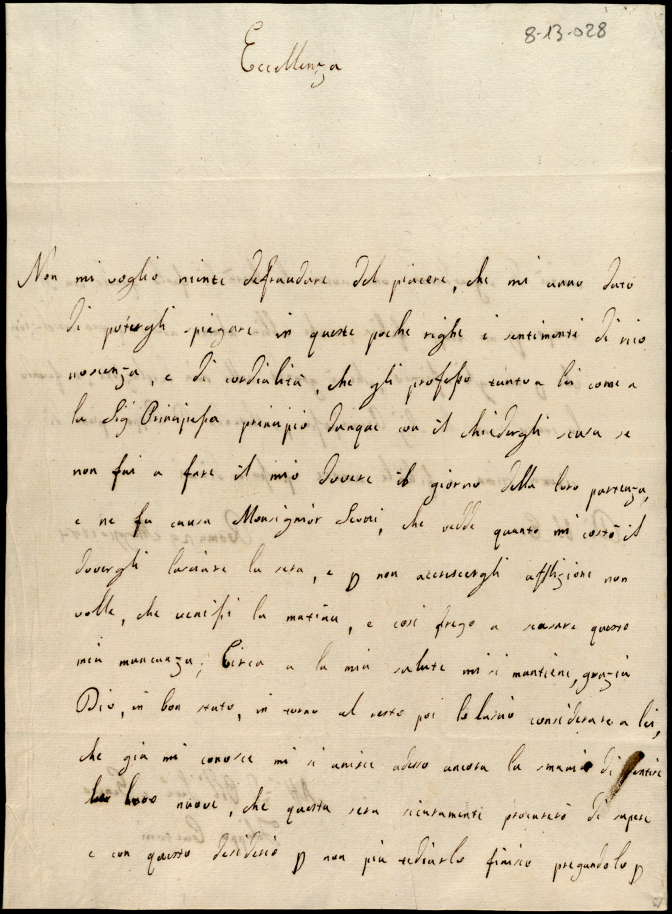 8-13-028
Eccellenza
Non mi voglio niente defraudare del piacere, che mi anno dato
di potergli spiegare in queste poche righe i sentimenti di rico
noscenza, e di cordialità, che gli professo tanto a lei come a
la Sig Principessa principio dunque con il chiedergli scusa se
non fui a fare il mio dovere il giorno della loro partenza,
e ne fu causa Monsignor, che vedde quanto mi costò il
dovergli lasciare la sera, e p non accrescergli afflizione non
volle, che venissi la matina, e così prego a scusare questa
mia mancanza; Circa a la mia salute mi si mantiene, grazia
Dio, in bon stato, in torno al resto poi lo lascio considerare a lei,
che già mi conosce mi si unisce adesso ancora la smania di sentire
le loro nuove, che questa sera sicuramente procurerò di sapere
e con questo desiderio p non più tediarlo finisco pregandolo p